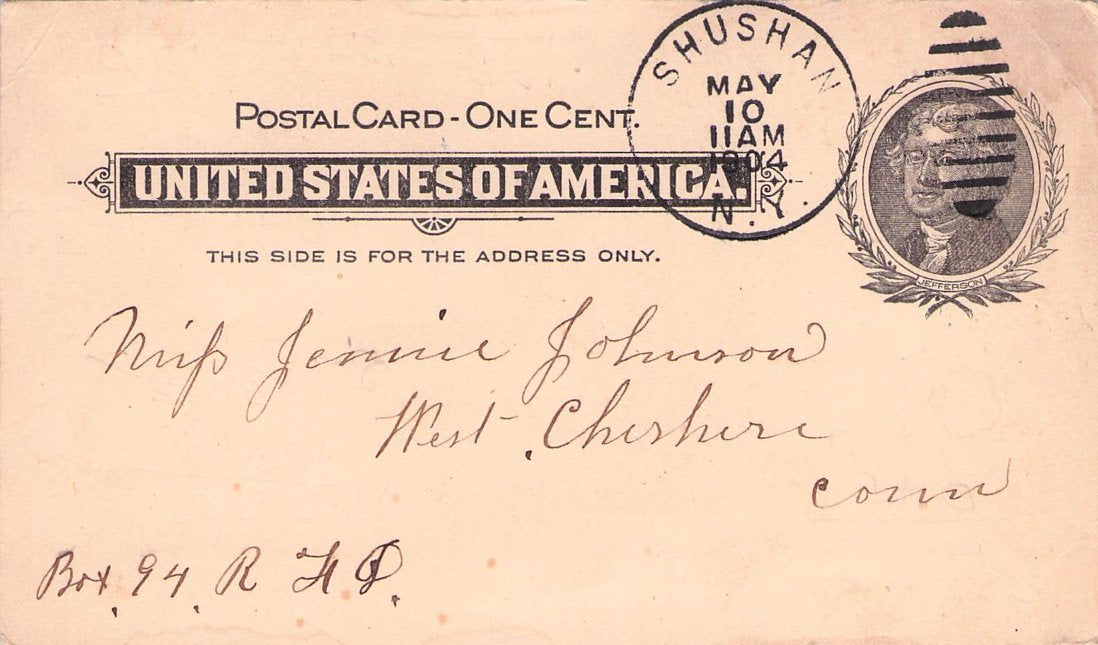 SHUSHAN
MAY
10
11AM
1904
N.Y.
POSTAL CARD - ONE CENT.
UNITED STATES OF AMERICA.
THIS SIDE IS FOR THE ADDRESS ONLY.
JEFFERSON
Miss Jennie Johnson
West Cheshere
Conn
Box 94 R F D.